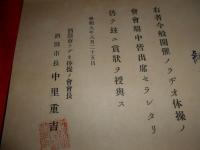 右者今般開催ノラヂオ体操ノ
會會期中皆出席セラレタリ
仍テ茲ニ賞狀ヲ授與ス
昭和九年八月二十五日
酒田市ラヂオ体操ノ會會長
酒田市長 中里重吉